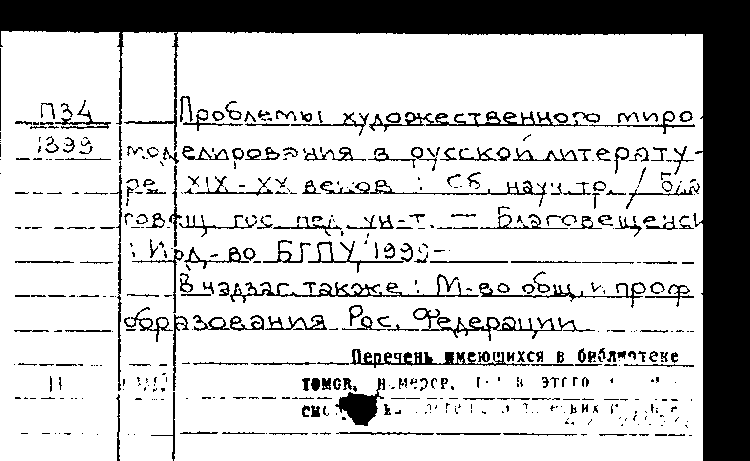 П34
1399
Проблемы художественного миро-
моделирования в русской литерату-
ре XIX-XX веков : Сб. науч. тр. / Бла-
говещ. гос. пед. ун-т. — Благовещенск
: Изд-во БГПУ, 1999-
В надзаг. также: М-во общ. и проф.
образования Рос. Федерации
Перечень имеющихся в библиотеке
томов, номеров, этого